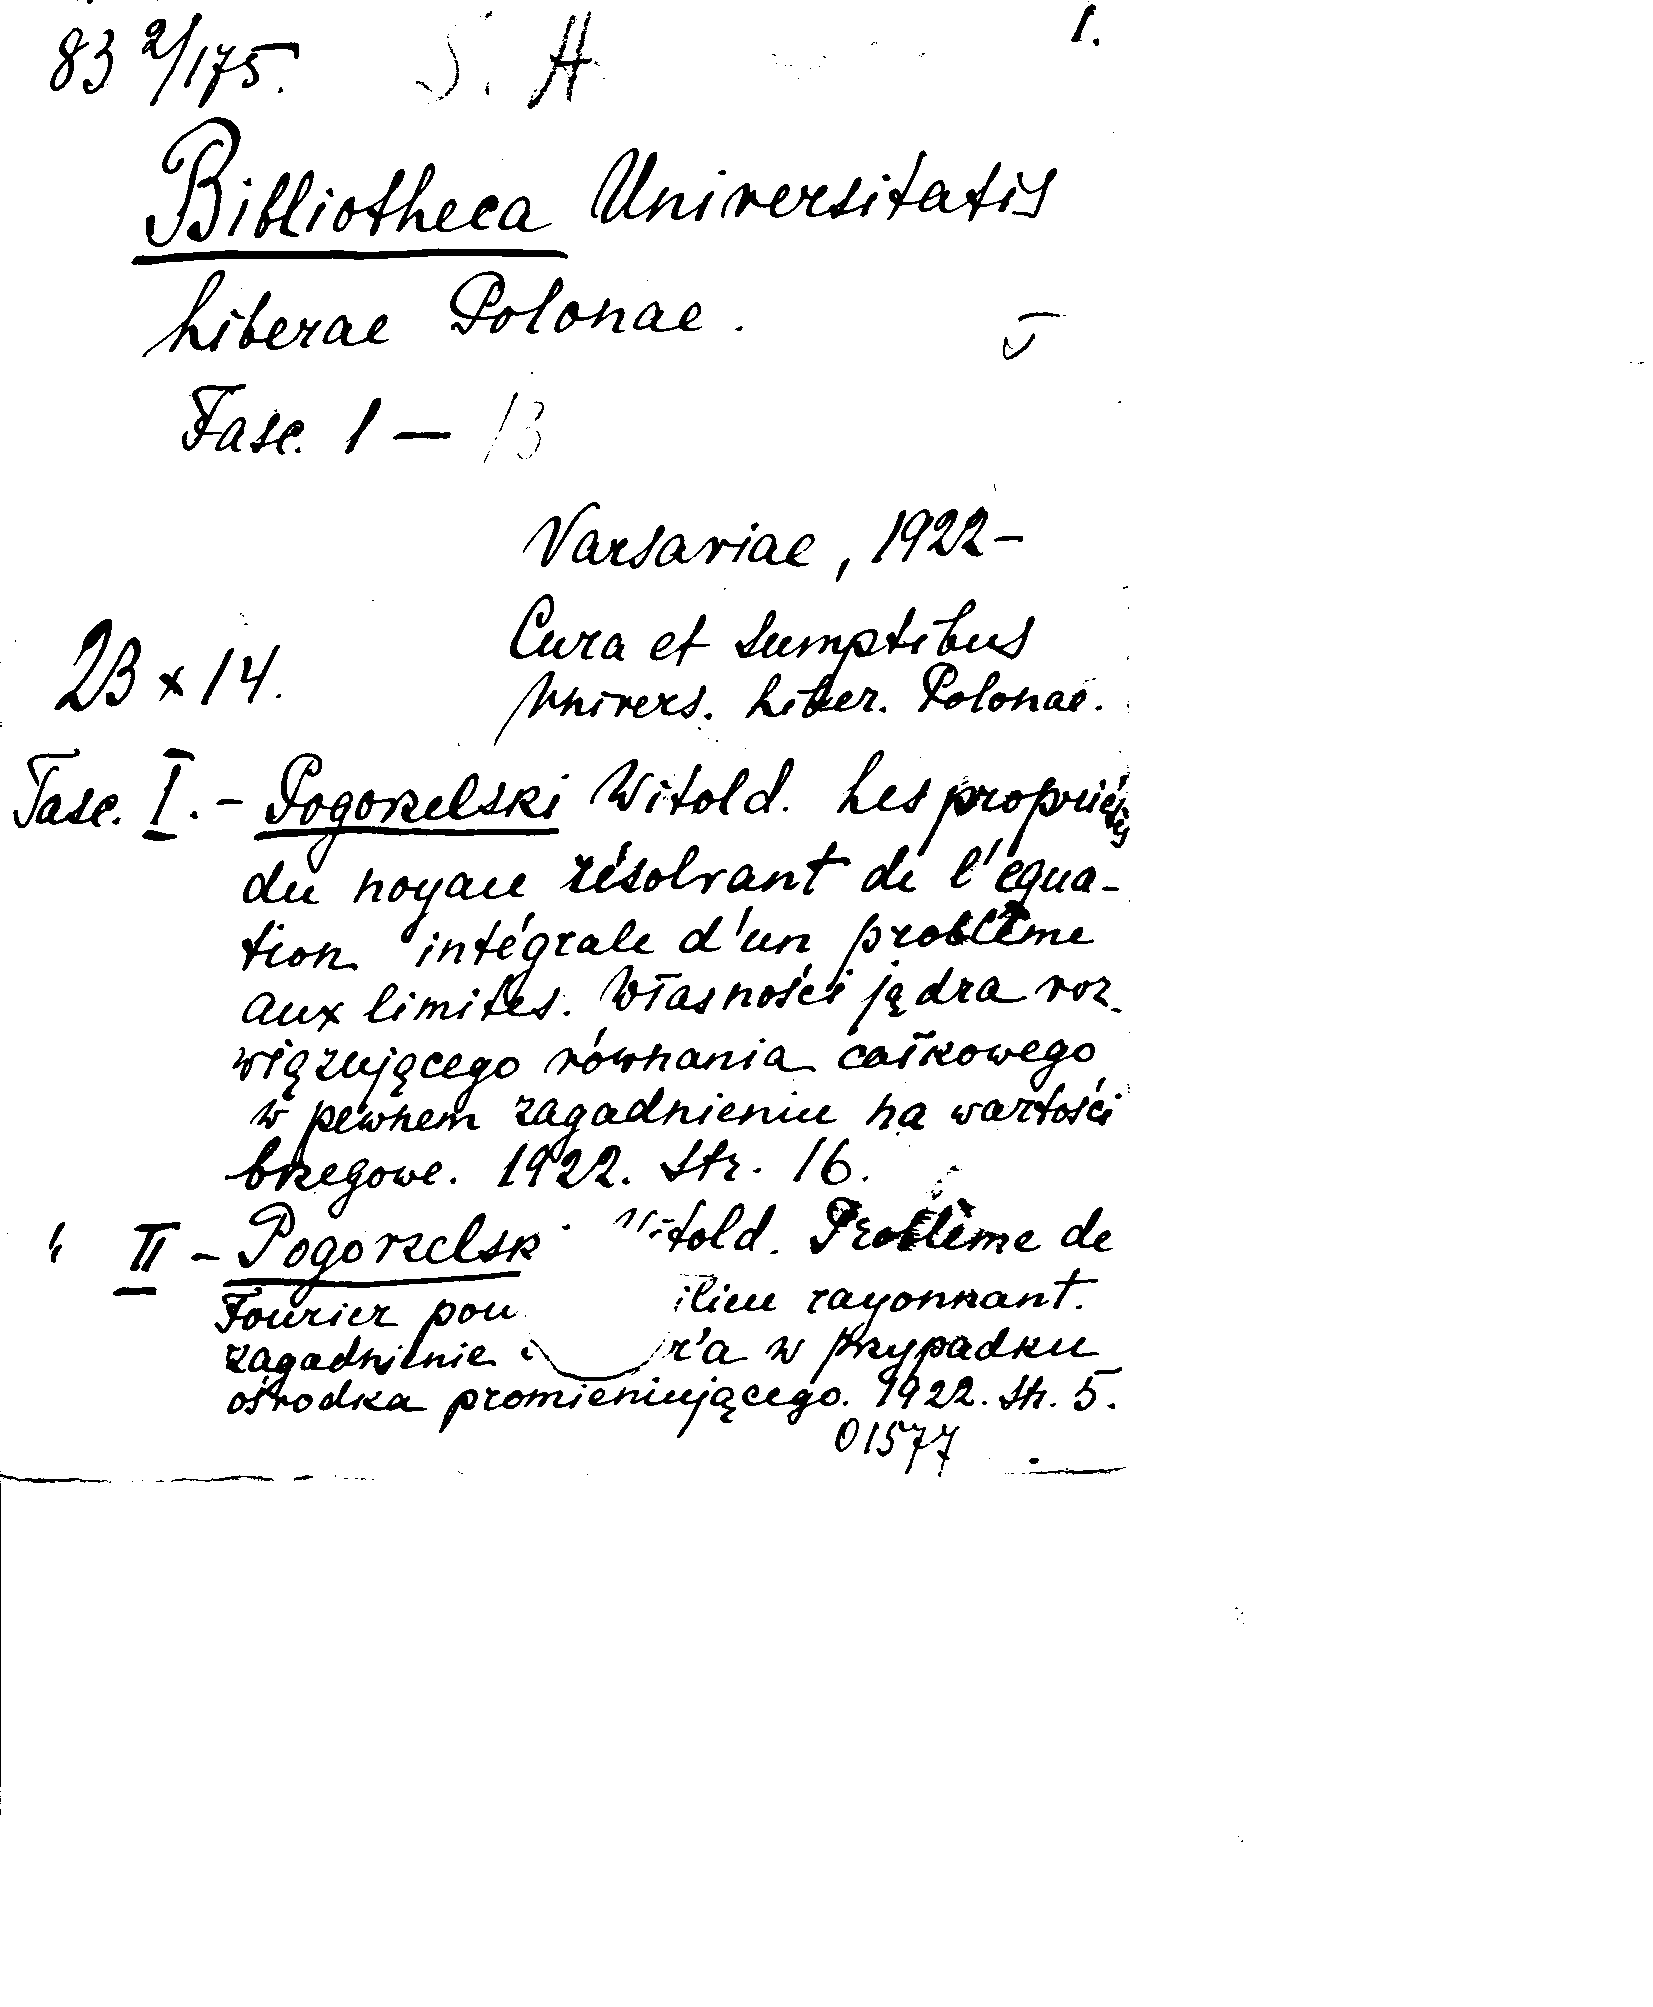 83 2/175. S. A 1.
Bibliotheca Universitatis
Liberae Polonae.
Fasc. 1 — 13
Varsaviae, 1922-
Cura et sumptibus
23 x 14.
Univers. Liber. Polonae.
Fasc. I. - Pogorzelski Witold. Les propriétés
du noyau résolvant de l'équa-
tion intégrale d'un problème
aux limites. Własności jądra roz-
wiązującego równania całkowego
w pewnem zagadnieniu na wartości
brzegowe. 1922. Str. 16.
" II - Pogorzelsk Witold. Problème de
Fourier pou ilieu rayonnant.
zagadnienie r'a w przypadku
ośrodka promieniującego. 1922. Str. 5.
01577